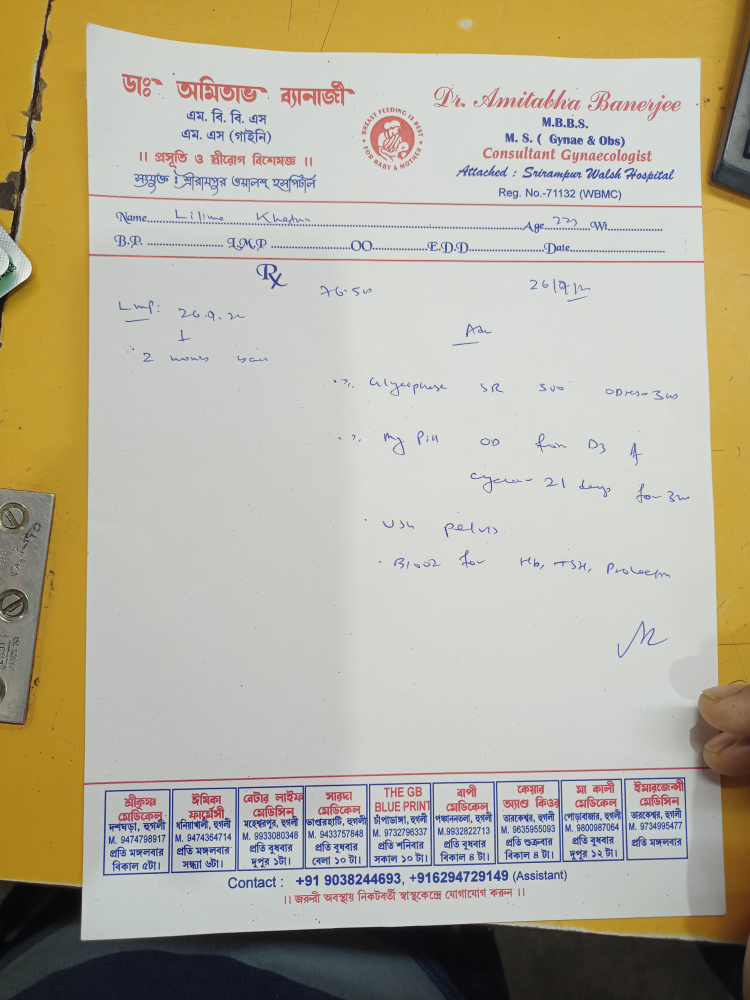 ডাঃ অমিতাভ ব্যানার্জী
এম. বি. বি. এস
এম. এস (গাইনি)
।। প্রসূতি ও স্ত্রীরোগ বিশেষজ্ঞ ।।
সংযুক্ত : শ্রীরামপুর ওয়ালশ হসপিটাল
BREAST FEEDING IS BEST FOR BABY & MOTHER
Dr. Amitabha Banerjee
M.B.B.S.
M. S. ( Gynae & Obs)
Consultant Gynaecologist
Attached : Srirampur Walsh Hospital
Reg. No.-71132 (WBMC)
Name Lilima Khatun Age 22 Wt
B.P. L.M.P OO E.D.D Date
Rx
Lmp: 26.9.
2
Adv
Glycephase SR 500
My Pill OD from D3 of
cycle 21 days for 3
USG pelvis
Blood for Hb, TSH, Prolactin
শ্রীকৃষ্ণ মেডিকেল
দশঘড়া, হুগলী
M. 9474798917
প্রতি মঙ্গলবার
বিকাল ৫টা।
ঈষিকা ফার্মেসী
ধনিয়াখালী, হুগলী
M. 9474364714
প্রতি মঙ্গলবার
সন্ধ্যা ৬টা।
বেটার লাইফ মেডিসিন
মহেশ্বরপুর, হুগলী
M. 9933080348
প্রতি বুধবার
দুপুর ১টা।
সারদা মেডিকেল
ভাণ্ডারহাটি, হুগলী
M. 9433757848
প্রতি বুধবার
বেলা ১০ টা।
THE GB BLUE PRINT
চাঁপাডাঙ্গা, হুগলী
M. 9732796337
প্রতি শনিবার
সকাল ১০ টা।
বাপী মেডিকেল
পঞ্চাননতলা, হুগলী
M.9932822713
প্রতি বুধবার
বিকাল ৪ টা।
কেয়ার অ্যাণ্ড কিওর
তারকেশ্বর, হুগলী
M. 9635955093
প্রতি শুক্রবার
বিকাল ৪ টা।
মা কালী মেডিকেল
পোড়াবাজার, হুগলী
M. 9800987064
প্রতি বুধবার
দুপুর ১২ টা।
ইমারজেন্সী মেডিসিন
তারকেশ্বর, হুগলী
M. 9734995477
প্রতি মঙ্গলবার
Contact : +91 9038244693, +916294729149 (Assistant)
।। জরুরী অবস্থায় নিকটবর্তী স্বাস্থ্যকেন্দ্রে যোগাযোগ করুন ।।